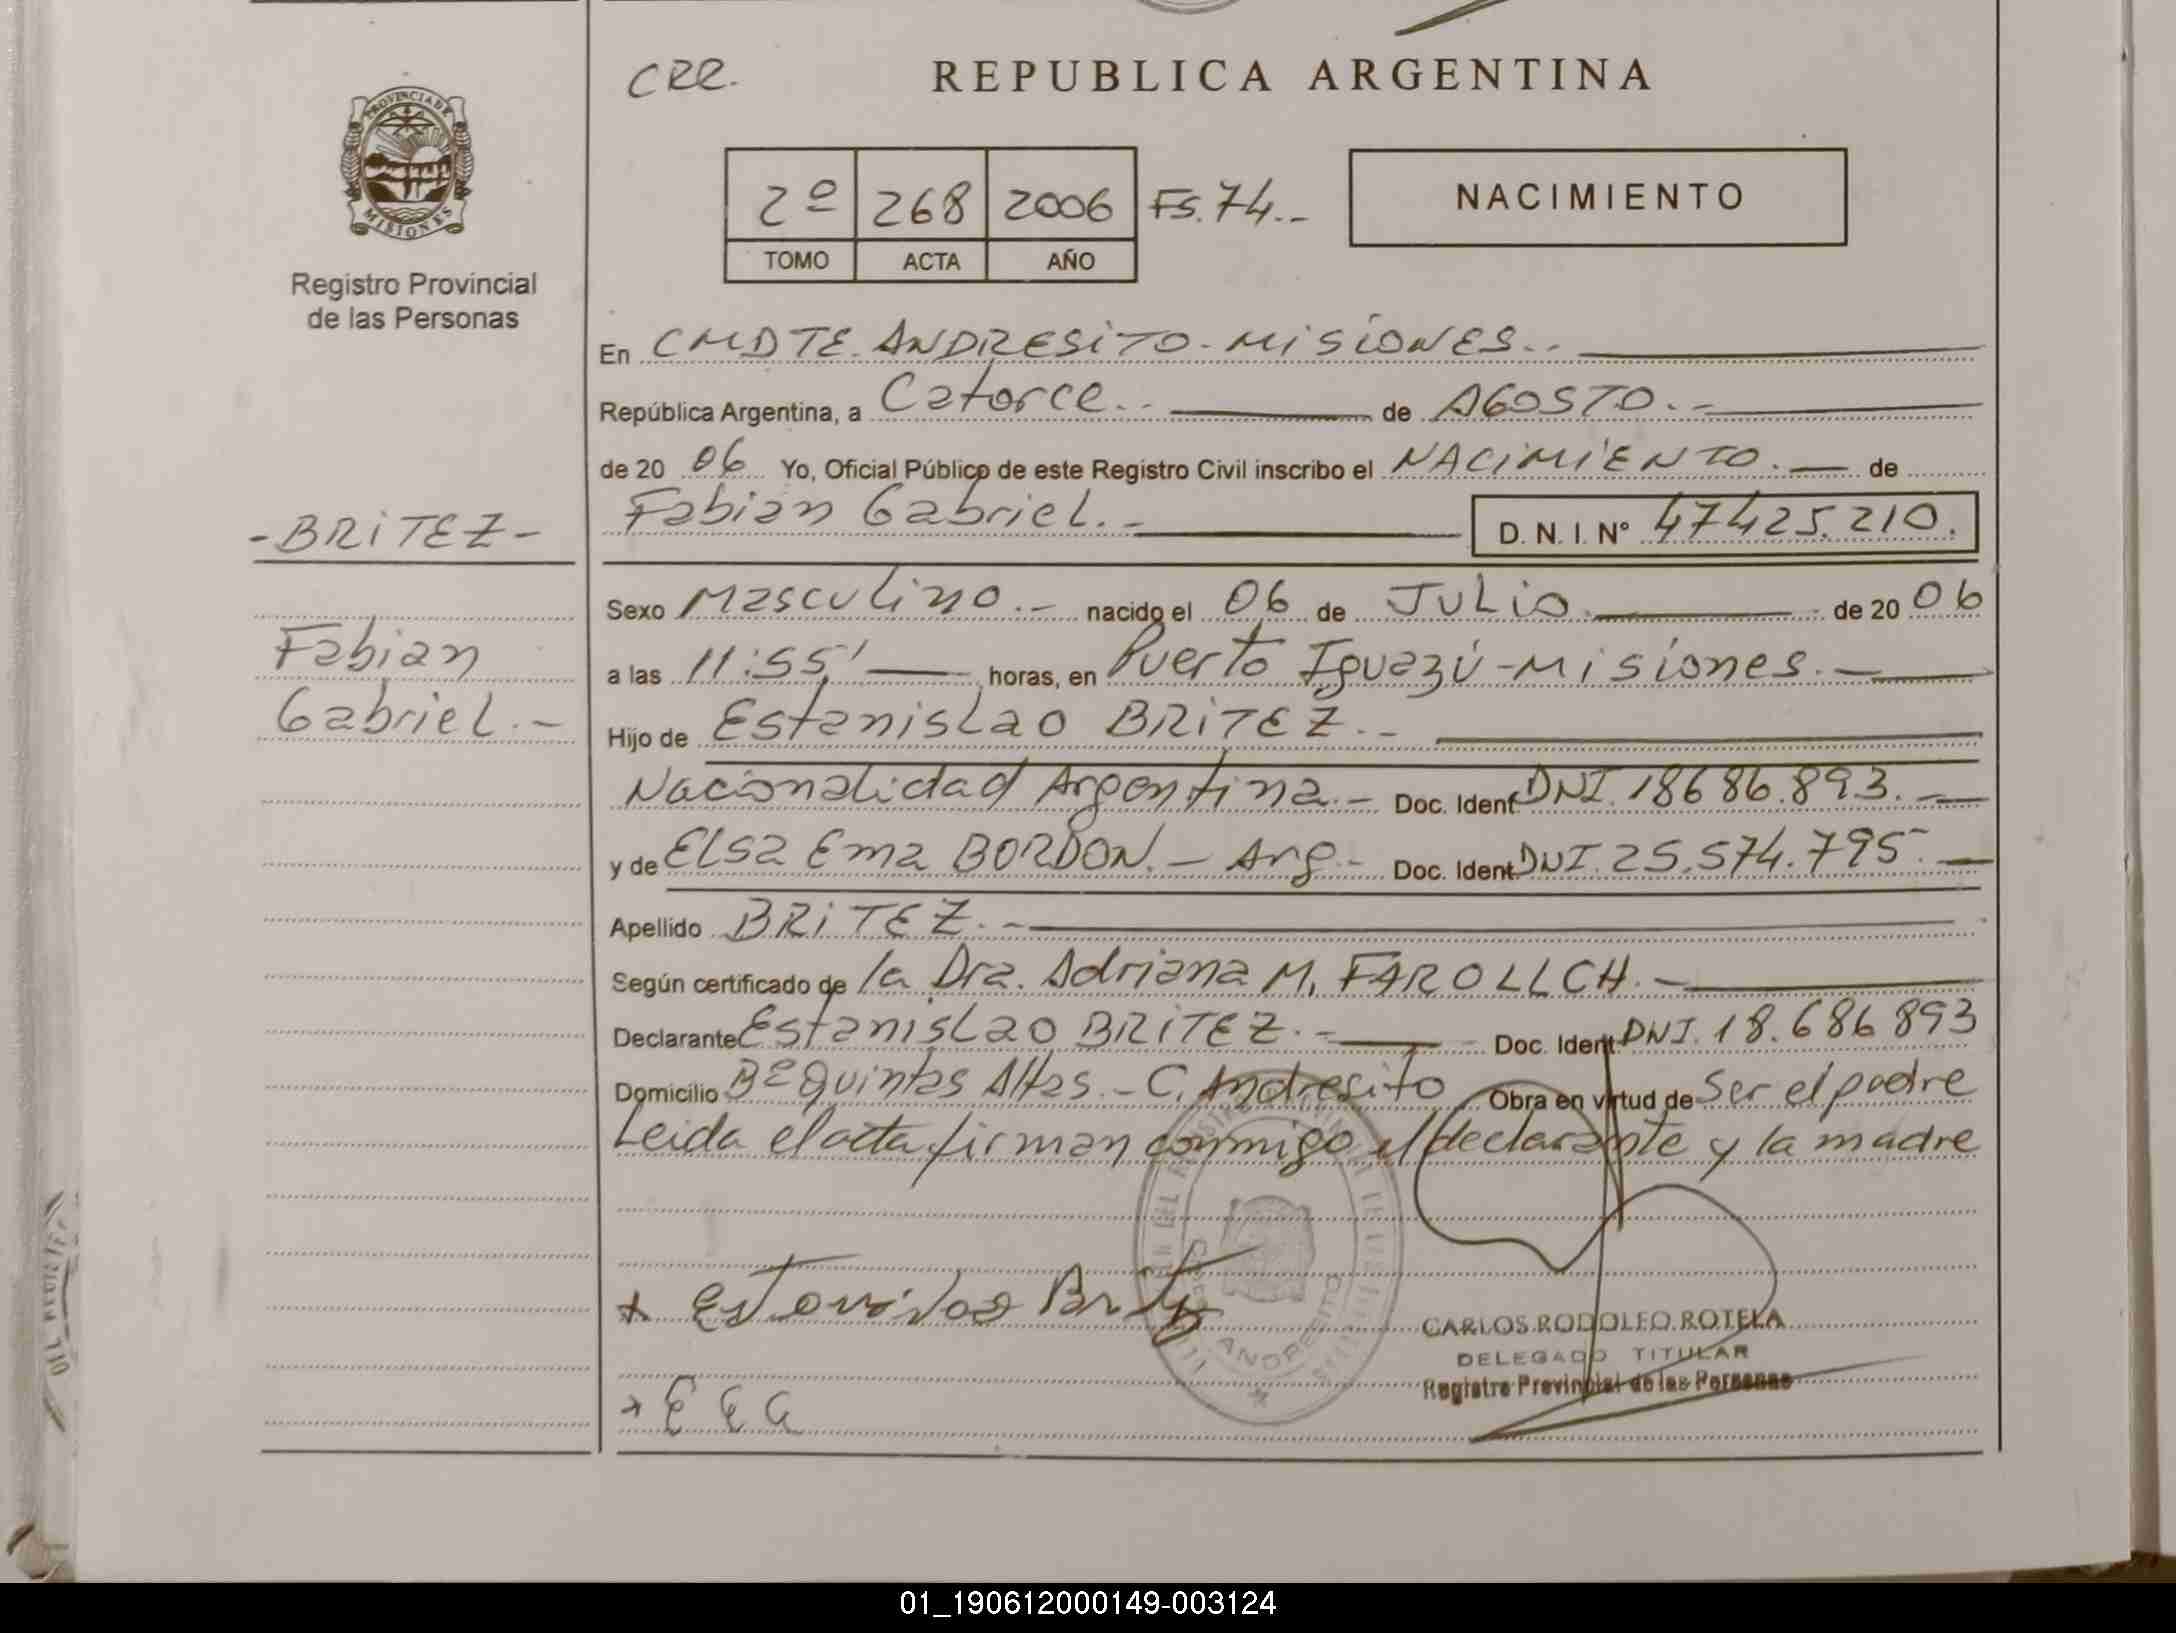 CRR.
REPUBLICA ARGENTINA
PROVINCIA DE
MISIONES
Registro Provincial
de las Personas
2º 268 2006 Fs. 74.-
TOMO ACTA AÑO
NACIMIENTO
En CMDTE. ANDRESITO - MISIONES.-
República Argentina, a Catorce.- de AGOSTO.-
de 20 06 Yo, Oficial Público de este Registro Civil inscribo el NACIMIENTO. - de
Fabian Gabriel.- D. N. I. Nº 47425.210.
- BRITEZ -
Fabian
Gabriel.-
Sexo Masculino.- nacido el 06 de JULIO. de 20 06
a las 11:55' horas, en Puerto Iguazú - Misiones.-
Hijo de Estanislao BRITEZ.-
Nacionalidad Argentina.- Doc. Ident. DNI. 18686.893.-
y de Elsa Ema BORDON.- Arg.- Doc. Ident. DNI. 25.574.795.-
Apellido BRITEZ.-
Según certificado de la Dra. Adriana M. FAROLLCH.-
Declarante Estanislao BRITEZ.- Doc. Ident. DNI. 18.686893
Domicilio Bº Quintas Altas.- C. Andresito Obra en virtud de Ser el padre
Leida el acta firman conmigo el declarante y la madre
ANDRESITO
CARLOS RODOLFO ROTELA
DELEGADO TITULAR
Registro Provincial de las Personas
01_190612000149-003124